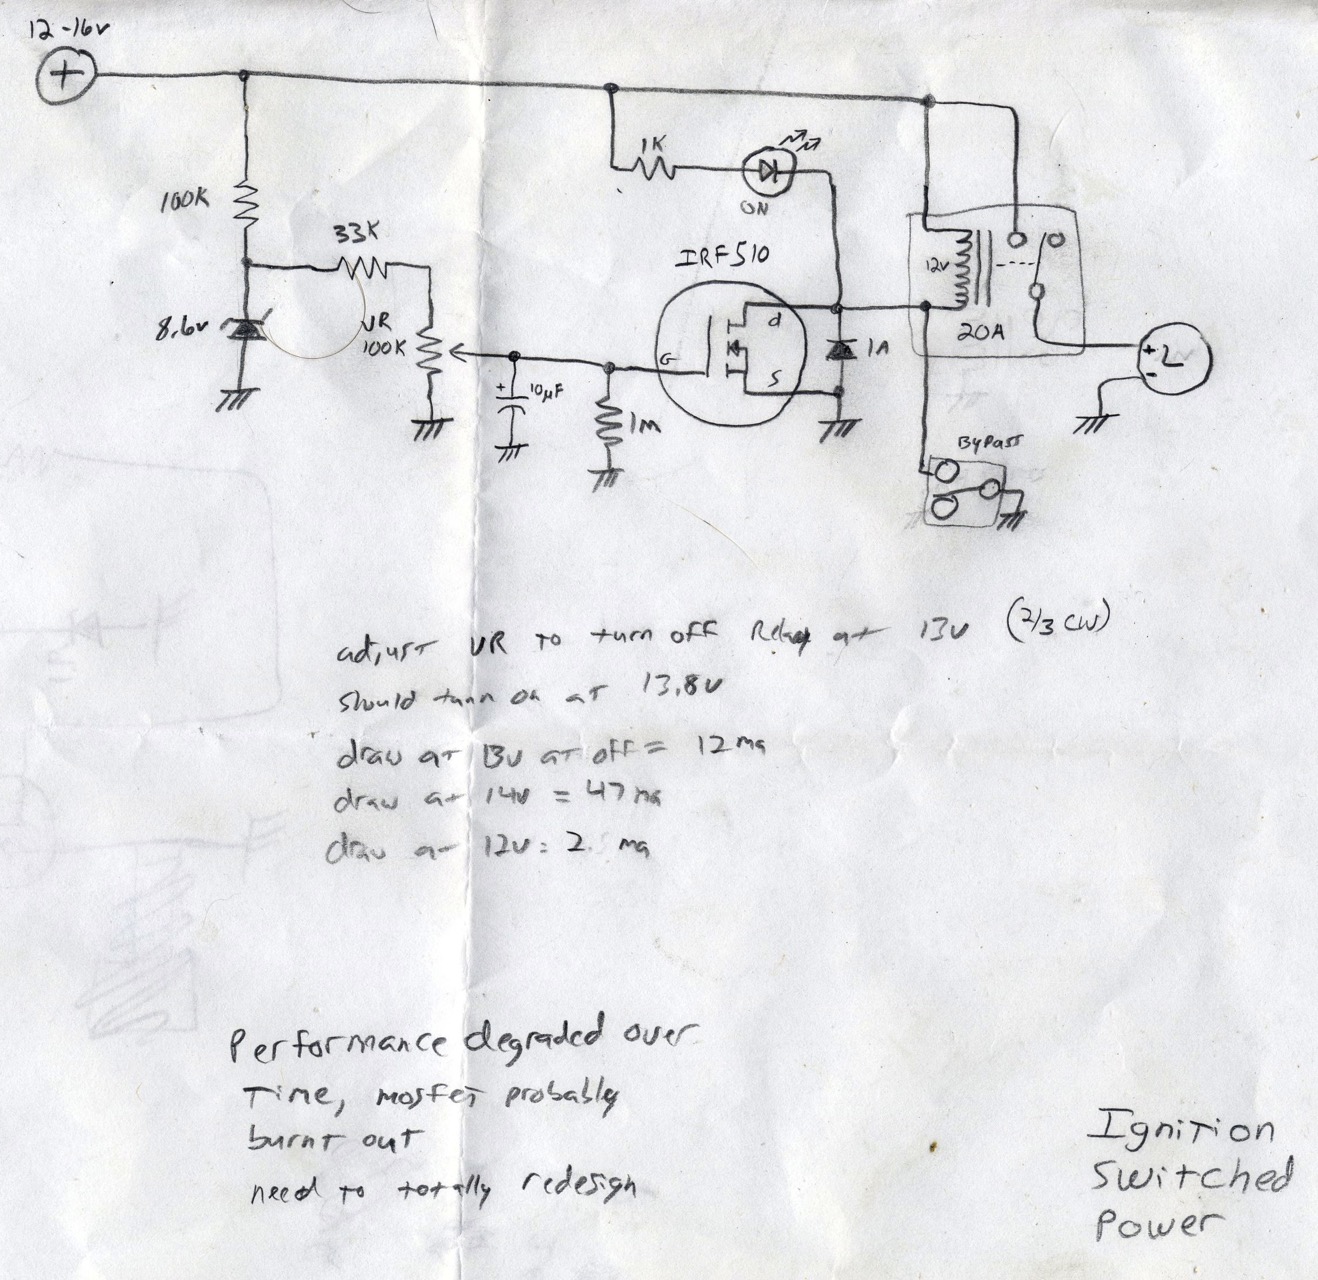 12-16v
+
100K
33K
8.6v
VR
100K
+
10µF
1M
1K
ON
IRF510
G
d
S
1A
12v
20A
+
-
L
Bypass
adjust VR to turn off Relay at 13v (2/3 CW)
should turn on at 13.8v
draw at 13v at off = 12ma
draw at 14v = 47ma
draw at 12v = 2. ma
Performance degraded over
Time, mosfet probably
burnt out
need to totally redesign
Ignition
Switched
Power